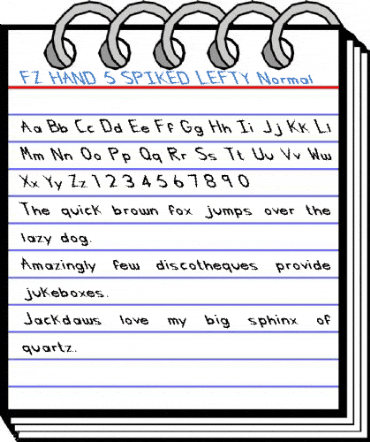 FZ HAND 5 SPIKED LEFTY Normal
Aa Bb Cc Dd Ee Ff Gg Hh Ii Jj Kk Ll
Mm Nn Oo Pp Qq Rr Ss Tt Uu Vv Ww
Xx Yy Zz 1 2 3 4 5 6 7 8 9 0
The quick brown fox jumps over the
lazy dog.
Amazingly few discotheques provide
jukeboxes.
Jackdaws love my big sphinx of
quartz.